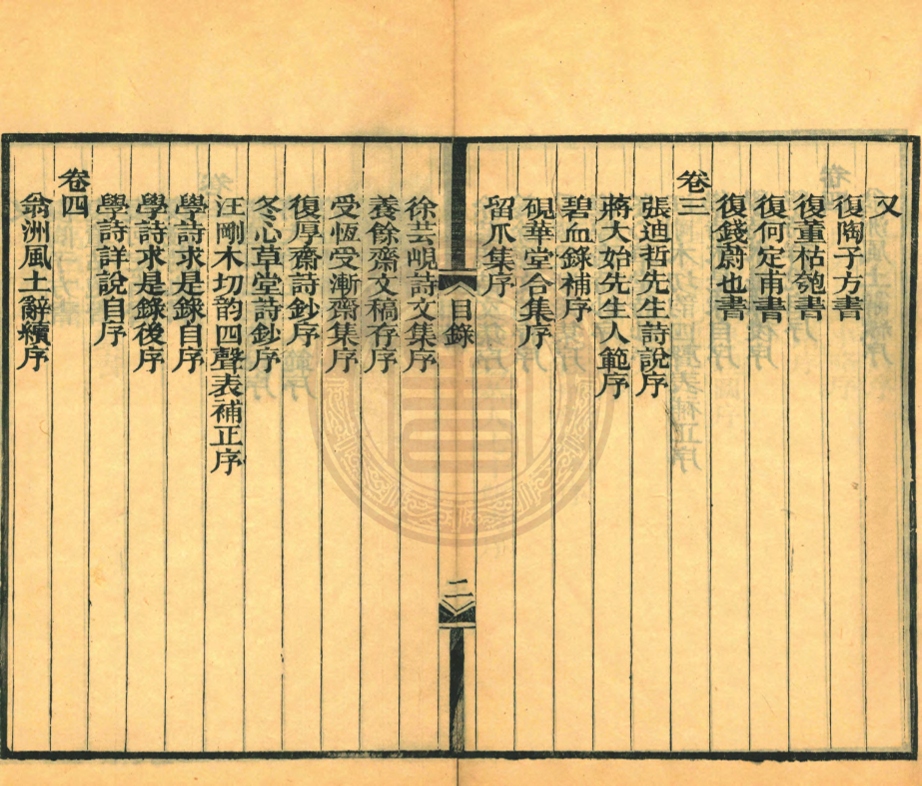 又
復陶子方書
復董枯匏書
復何定甫書
復錢蔚也書
卷三
張迪哲先生詩說序
蔣大始先生人範序
碧血錄補序
硯華堂合集序
留爪集序
目錄
二
徐芸峴詩文集序
養餘齋文稿存序
受恆受漸齋集序
復厚齋詩鈔序
冬心草堂詩鈔序
汪剛木切韵四聲表補正序
學詩求是錄自序
學詩求是錄後序
學詩詳說自序
卷四
翁洲風土辭續序